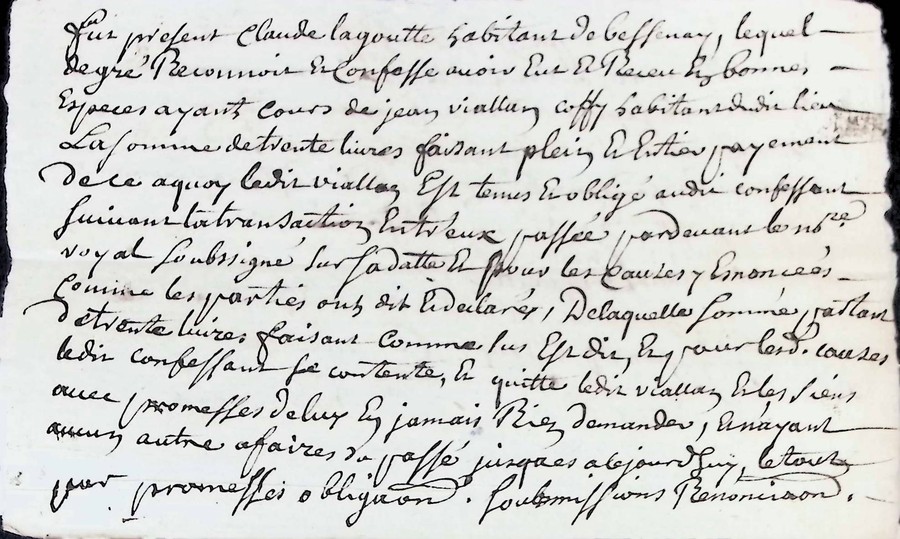 fut present Claude lagoutte habitant de bessenay, lequel
de gré Reconnoit Et Confesse avoir Eut Et Receu En bonnes
Especes ayant Cours de jean viallan coffy habitant dudit lieu
La somme de trente livres faisant plein Et Entier payement
de ce aquoy ledit viallan Est tenus Et obligé audit confessant
suivant la transaction Entr'eux passée pardevant le nore
royal soubssigné sur sa datte Et pour les Causes y Enoncées
Comme les partiés ont dit Et declarés, De laquelle sommé partant
de trente livres faisant Comme sus Est dit, Et pour lesd. causes
ledit confessant se contente, Et quitte ledit viallan Et les siens
avec promesses de luy En jamais Rien demander, Et n'ayant
aucun autre afaires du passé jusques aujourd'huy, le tout
par promesses obligaon. soubmissions Renonciaon.